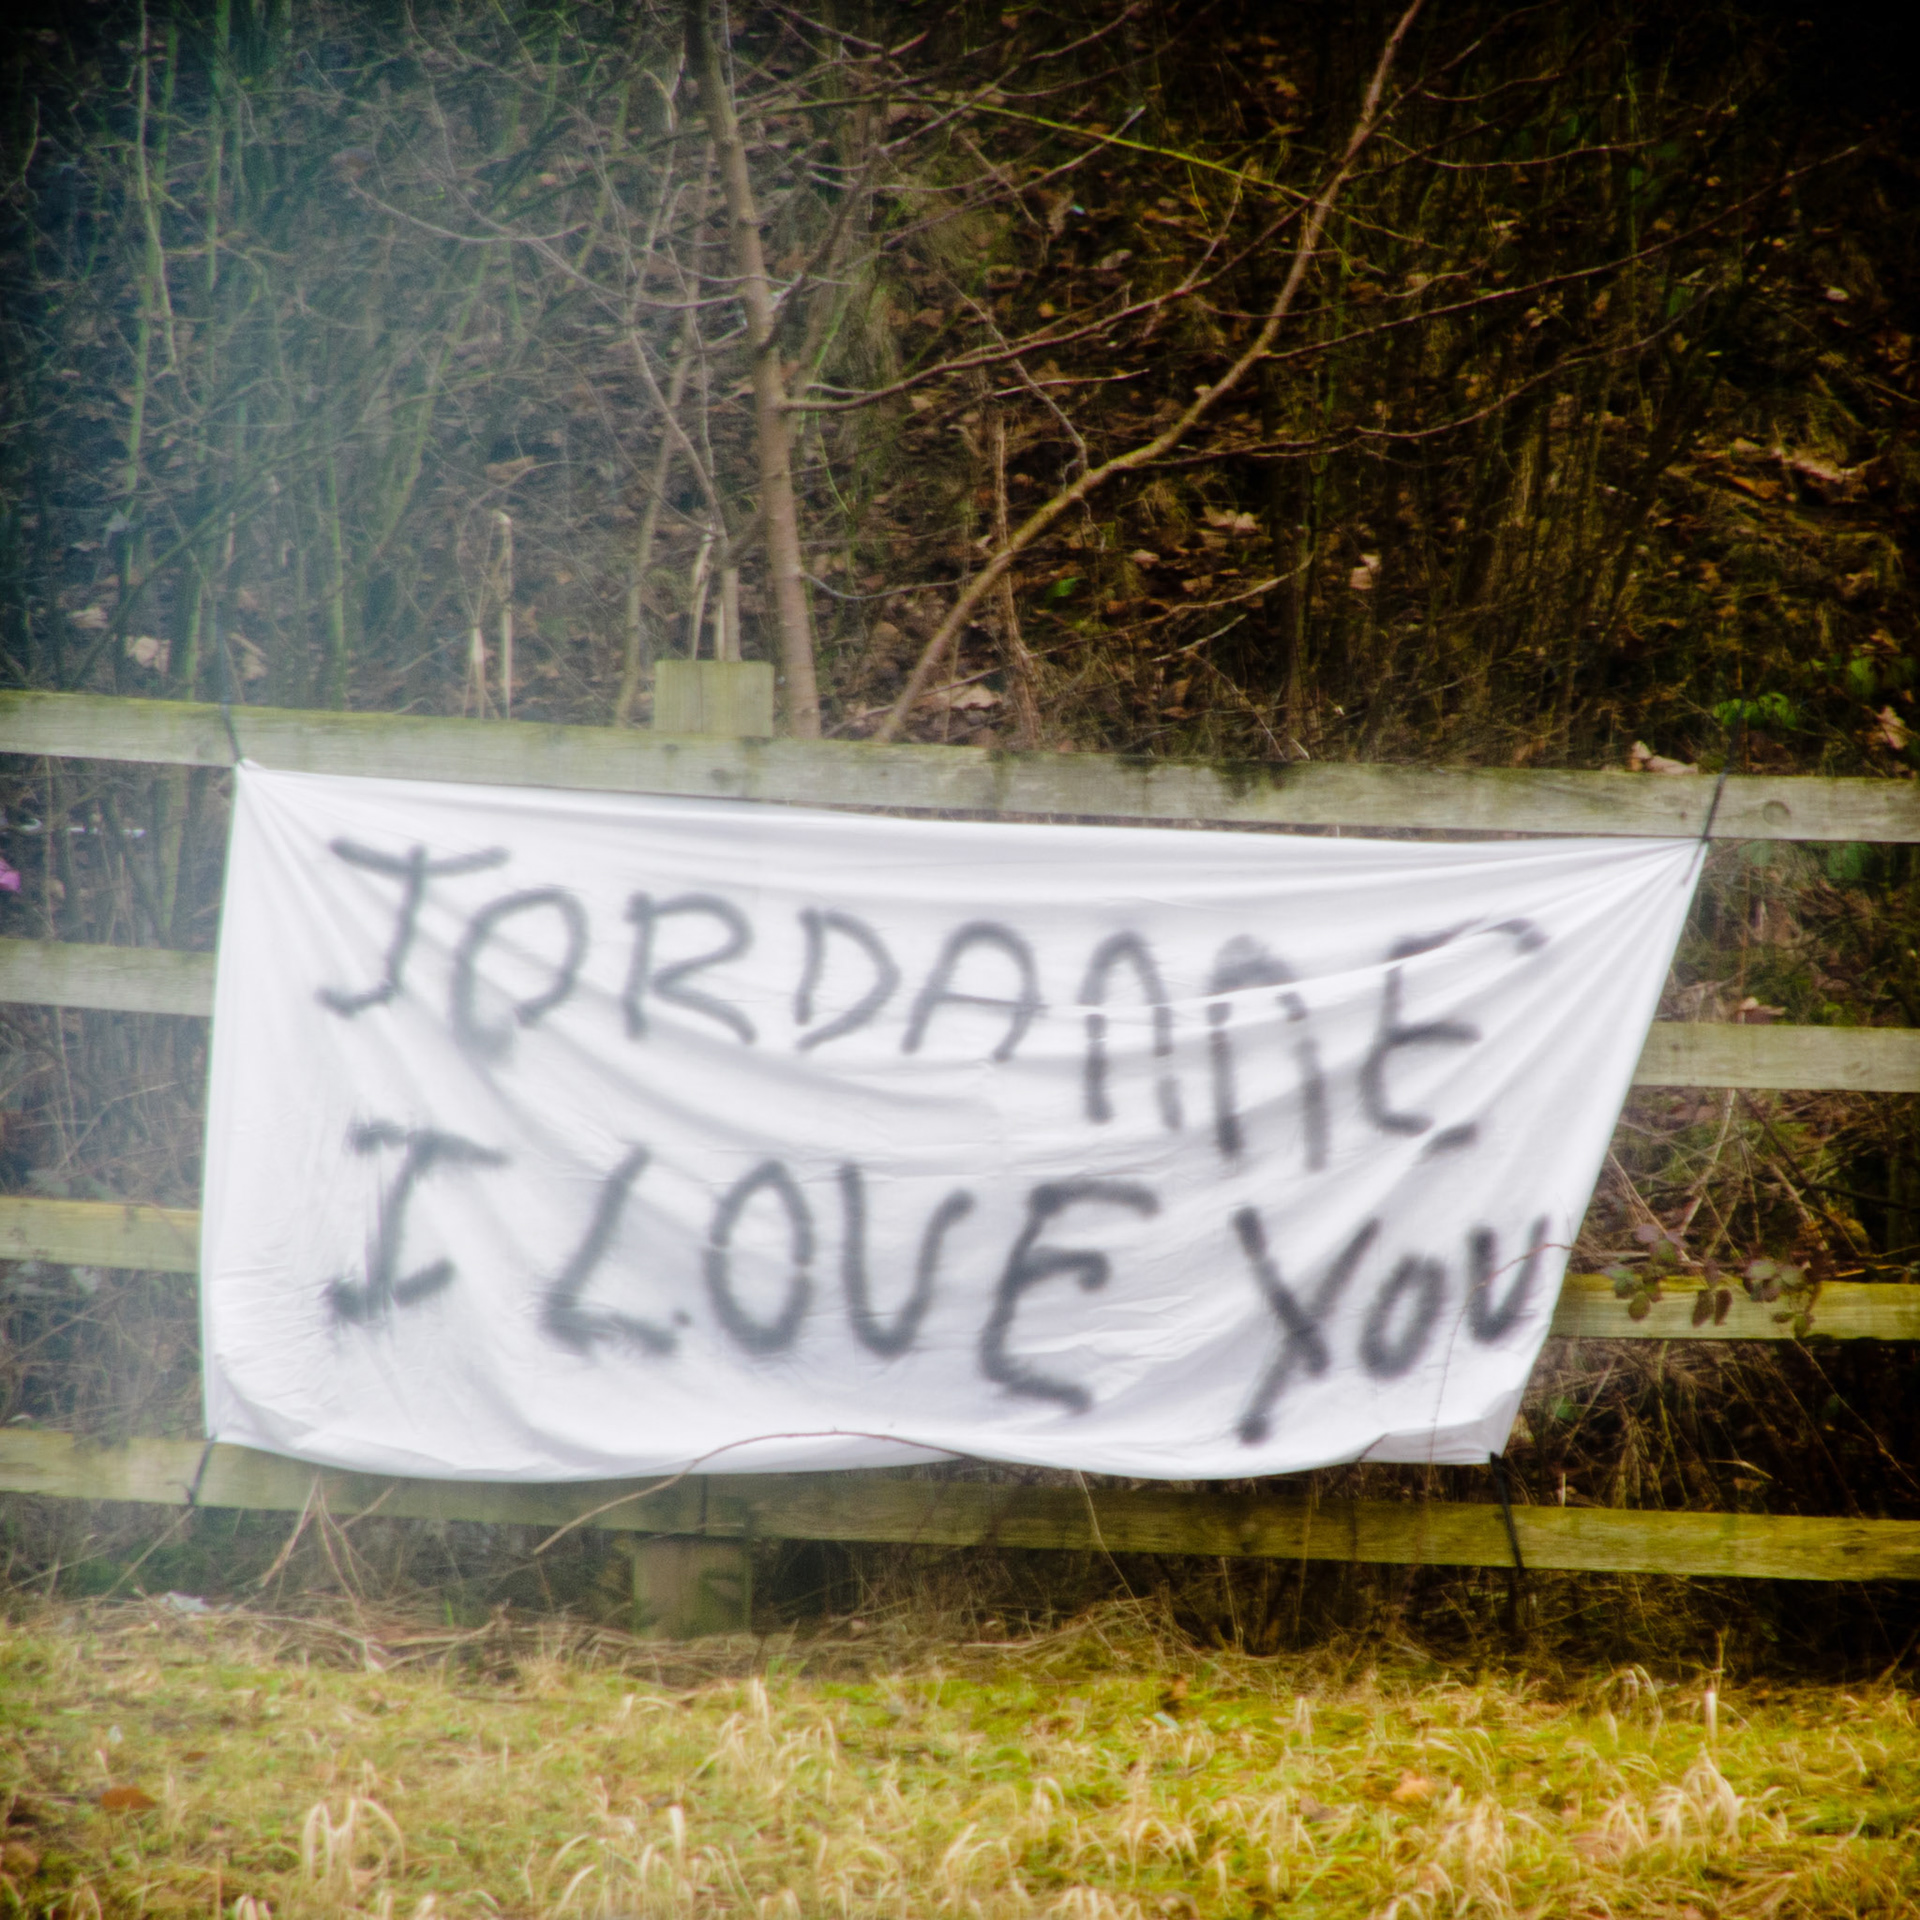 JORDANNE
I LOVE YOU